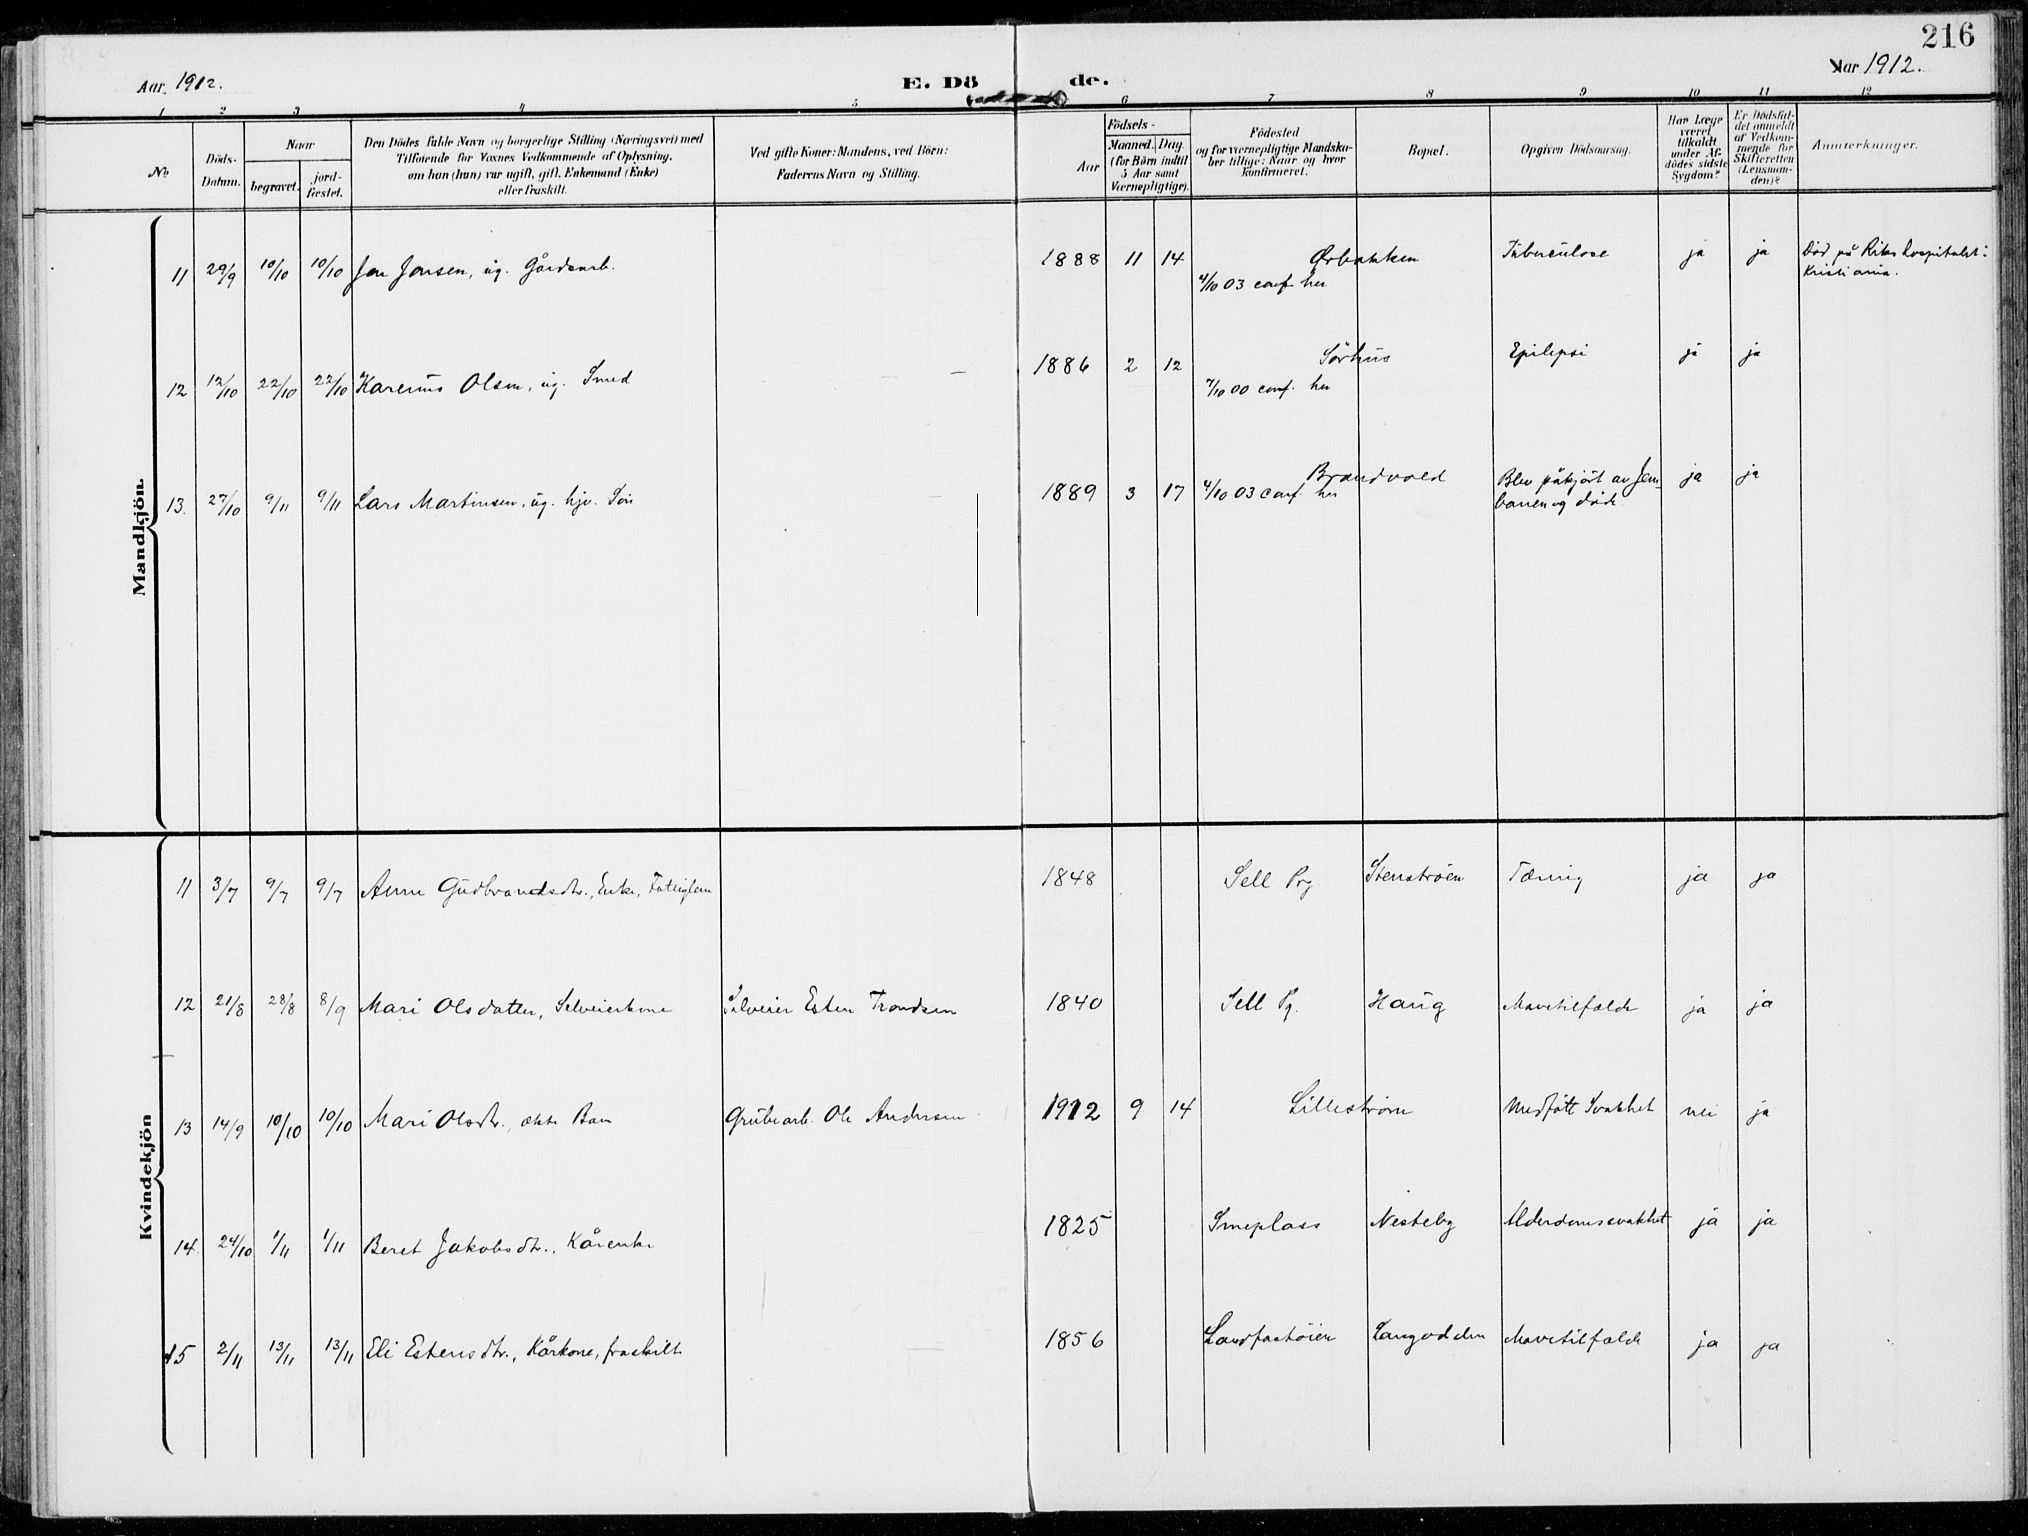 216
Aar 1912.
E. Dö de.
Aar 1912.
1 2 3 4 5 6 7 8 9 10 11 12
No
Döds-
Datum.
Naar
begravet.
jord-
fæstet.
Den Dödes fulde Navn og borgerlige Stilling (Næringsvei) med
Tilföiende for Voxnes Vedkommende af Oplysning,
om han (hun) var ugift, gift, Enkemand (Enke)
eller fraskilt.
Ved gifte Koner: Mandens, ved Börn:
Faderens Navn og Stilling.
Födsels-
Aar
Maaned. Dag.
(for Börn indtil
5 Aar samt
Værnepligtige).
Födested
og for værnepligtige Mandska-
ber tillige: Naar og hvor
konfirmeret.
Bopæl.
Opgiven Dödsaarsag.
Har Læge
været
tilkaldt
under Af-
dödes sidste
Sygdom?
Er Dödsfal-
det anmeldt
af Vedkom-
mende for
Skifteretten
(Lensman-
den)?
Anmerkninger.
Mandkjön.
11 29/9 10/10 10/10 Jon Jonsen, ug. Gårdsarb. 1888 11 14 Ørbakken Tuberculose ja ja Död på Rikshospitalet i
4/10 03 conf. her Kristiania.
12 12/10 22/10 22/10 Karenus Olsen, ug. Smed 1886 2 12 Sörhus Epilepsi ja ja
7/10 00 conf. her
13. 27/10 9/11 9/11 Lars Martinsen, ug. hjv. Sön 1889 3 17 Brandvold Blev påkjört av Jern- ja ja
4/10 03 conf. her banen og döde
Kvindekjön
11 3/7 9/7 9/7 Anne Gudbrandsdtr., Enke, Fattiglem 1848 Sell Prg Stenströen Tæring ja ja
12 21/8 28/8 8/9 Mari Olsdatter, Selveierkone Selveier Esten Trondsen 1840 Sell Pg. Haug Mavetilfælde ja ja
13 14/9 10/10 10/10 Mari Olsdtr., ekte Barn Grubearb. Ole Andersen 1912 9 14 Lilleström Medfött Svakhet nei ja
14. 24/10 1/11 1/11 Beret Jakobsdtr., Kårenke 1825 Smeplass Nesteby Alderdomssvakhet ja ja
15 2/11 13/11 13/11 Eli Estensdtr., Kårkone, fraskilt 1856 Landfastöien Langodden Mavetilfælde ja ja